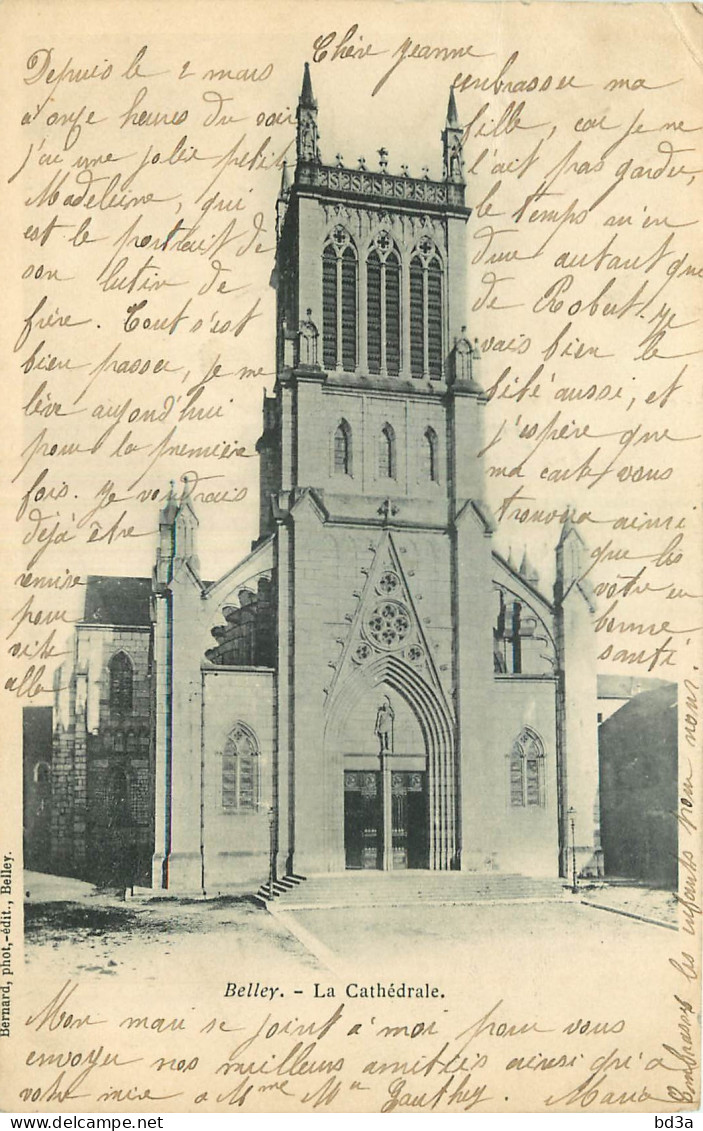 Chère Jeanne
Depuis le 2 mars
à onze heures du soir
j'ai une jolie petite
Madeleine, qui
est le portrait de
son lutin de
frère. Tout s'est
bien passé, je me
lève aujourd'hui
pour la première
fois. Je voudrais
déjà être
remise
pour
vite
aller
embrasser ma
fille, car je ne
l'ait pas gardée,
le temps m'en
dure autant que
de Robert. Je
vais bien le
bébé aussi, et
j'espère que
ma carte vous
trouvera ainsi
que les
vôtre en
bonne
santé
Embrassez les enfants pour nous.
Bernard, phot,-édit., Belley.
Belley. - La Cathédrale.
Mon mari se joint à moi pour vous
envoyer nos meilleurs amitiés ainsi qu'à
votre mère à Mme Ma Gauthey. Maria
bd3a